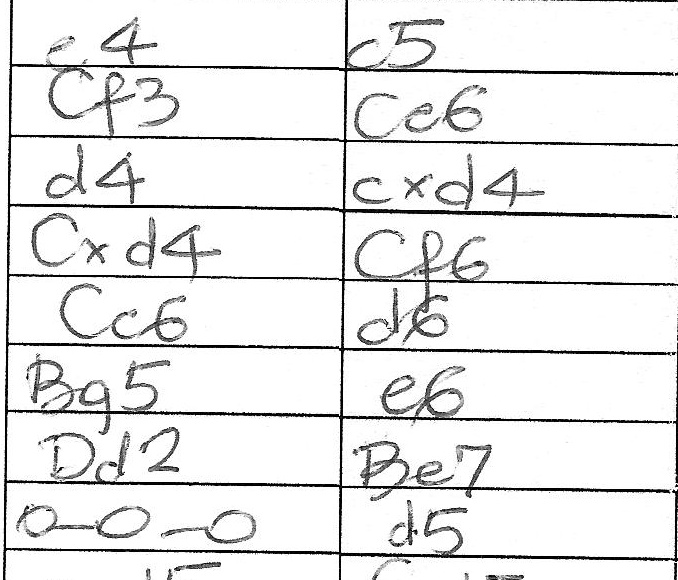 e4 c5
Cf3 Cc6
d4 cxd4
Cxd4 Cf6
Cc6 d6
Bg5 e6
Dd2 Be7
0-0-0 d5